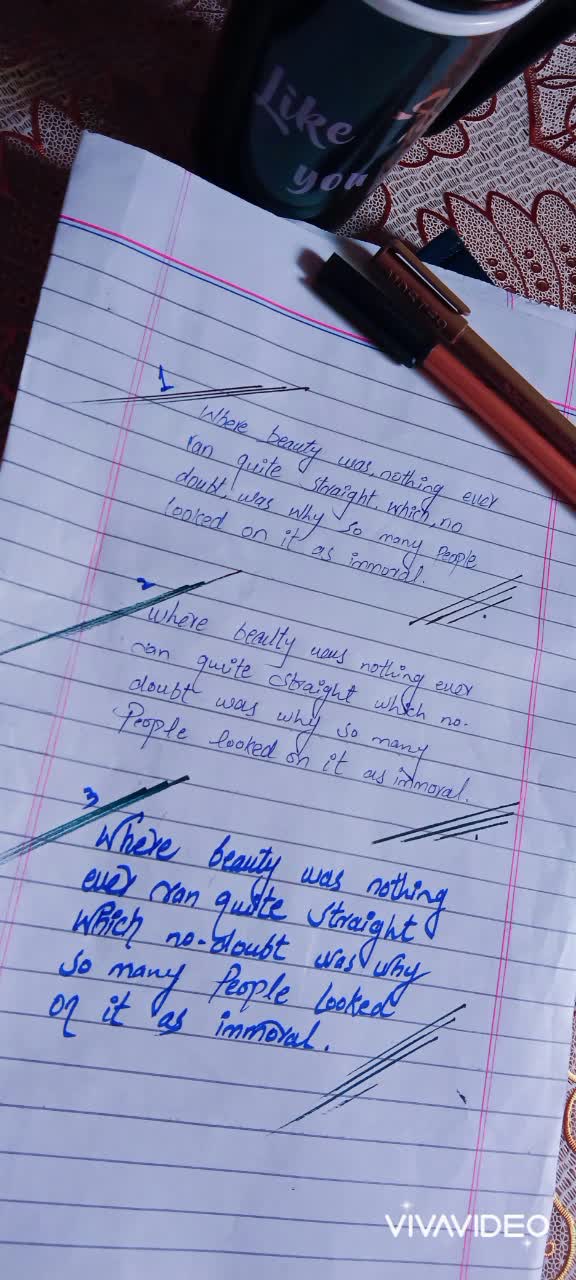 Like
you
1
Where beauty was, nothing ever
ran quite straight, which, no
doubt, was why so many People
looked on it as immoral.
2
Where beaulty was nothing ever
ran quite straight which no-
doubt was why so many
People looked on it as immoral.
3
Where beauty was nothing
ever ran quite straight
which no-doubt was why
so many People looked
on it as immoral.
VIVAVIDEO